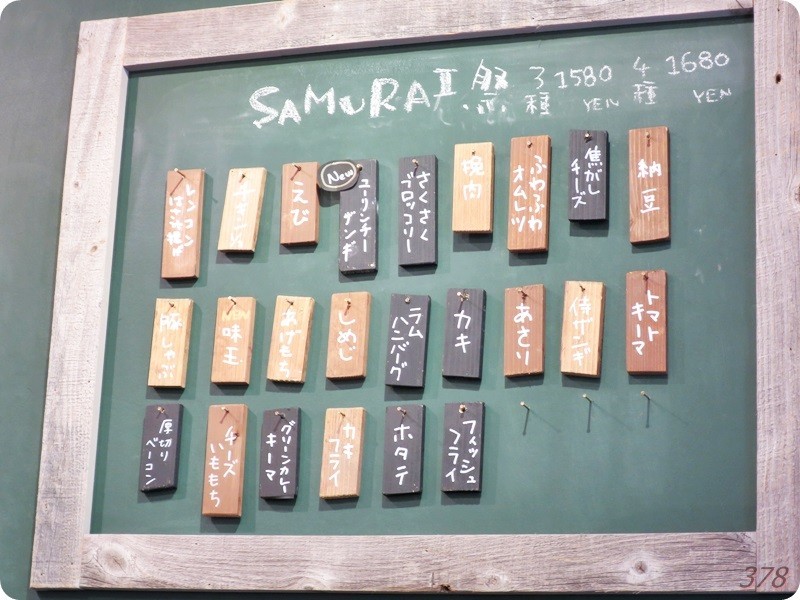 SAMURAI祭 3種 1580 YEN 4種 1680 YEN
納豆
焦がし
チーズ
ふわふわ
オムレツ
挽肉
さくさく
ブロッコリー
New
ユーリンチー
ザンギ
えび
チキン½
レンコン
はさみ揚げ
トマト
キーマ
侍ザンギ
あさり
カキ
ラム
ハンバーグ
しめじ
あげもち
味玉
豚しゃぶ
フィッシュ
フライ
ホタテ
カキ
フライ
グリーンカレー
キーマ
チーズ
いももち
厚切り
ベーコン
378